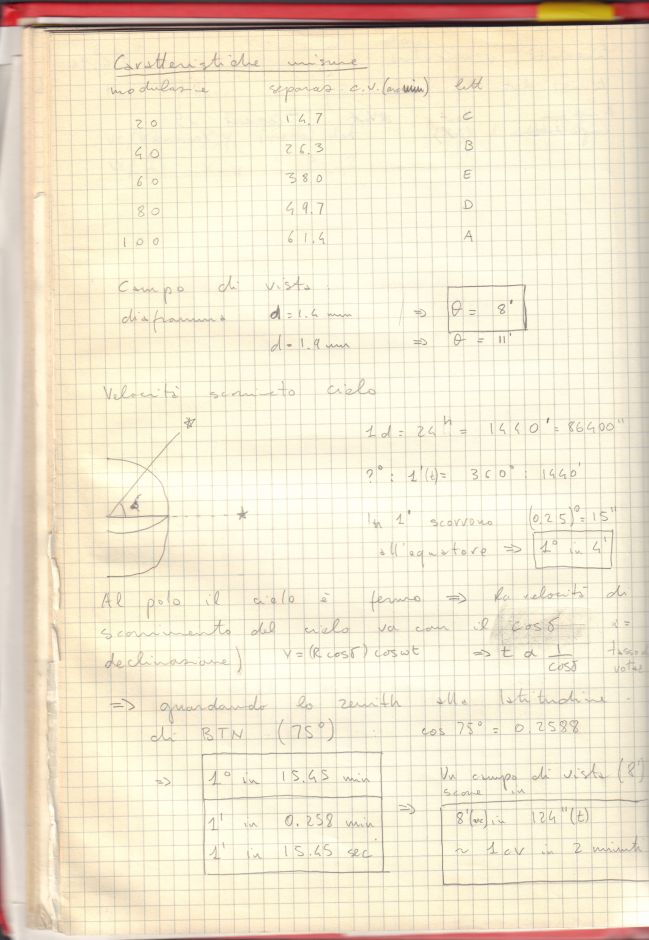 Caratteristiche misure
modulazione separaz c.v. (arcmin) lett
20 14.7 C
40 26.3 B
60 38.0 E
80 49.7 D
100 61.4 A
Campo di vista
diaframma d = 1.4 mm => θ = 8'
d = 1.9 mm => θ = 11'
Velocità scorrimento cielo
1 d = 24h = 1440' = 86400"
?° : 1'(t) = 360° : 1440'
In 1' scorrono (0.25)° = 15"
all'equatore => 1° in 4'
δ
Al polo il cielo è fermo => la velocità di
scorrimento del cielo va con il cos δ
declinazione) v = (R cos δ) cos ωt => t α 1/cos δ
=> guardando lo zenith alla latitudine
di BTN (75°) cos 75° = 0.2588
=> 1° in 15.45 min
1' in 0.258 min
1' in 15.45 sec
=> Un campo di vista (8'
scorre in
8'(arc) in 124"(t)
~ 1 cv in 2 minuti